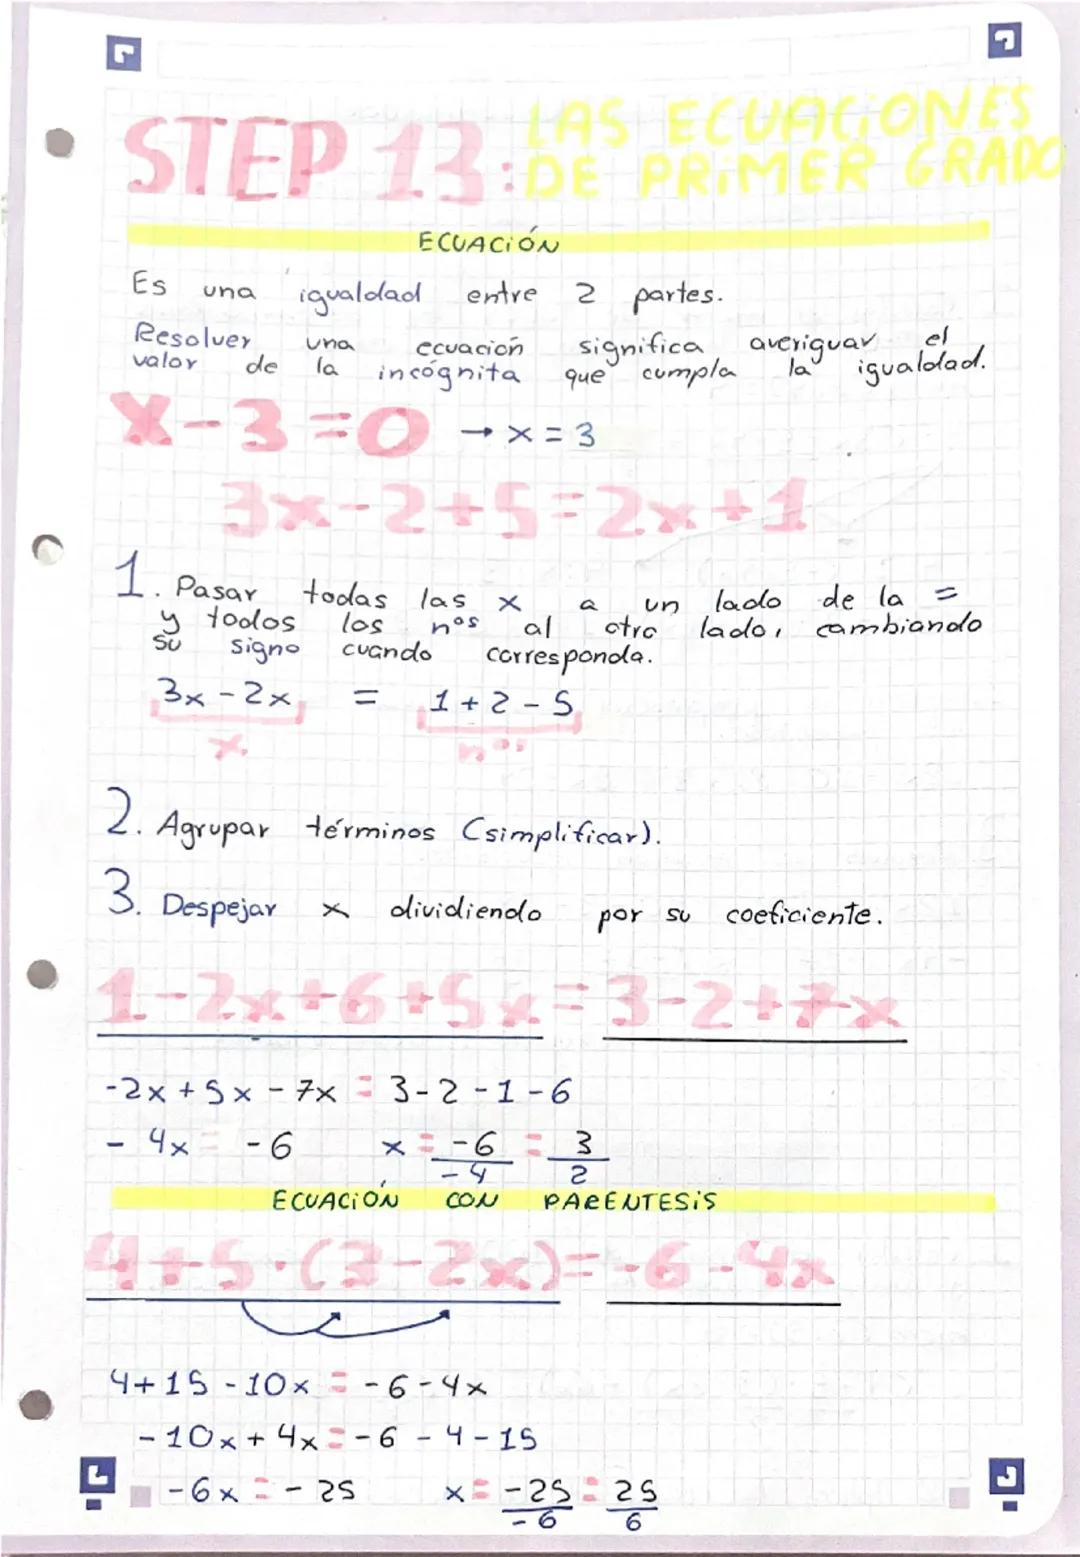 STEP 13: LAS ECUACIONES DE PRIMER GRADO
ECUACIÓN
Es una igualdad entre 2 partes.
Resolver una ecuación significa averiguar el
valor de la incógnita que cumpla la igualdad.
x-3=0 → x=3
3x-2+5=2x+1
1. Pasar todas las x a un lado de la =
y todos los nos al otro lado, cambiando
su signo cuando corresponda.
3x-2x = 1+2-5
x nos
2. Agrupar términos (simplificar).
3. Despejar x dividiendo por su coeficiente.
1-2x+6+5x=3-2+7x
-2x+5x-7x=3-2-1-6
-4x=-6 x=-6/-4=3/2
ECUACIÓN CON PARENTESIS
4+5·(3-2x)=-6-4x
4+15-10x=-6-4x
-10x+4x=-6-4-15
-6x=-25 x=-25/-6=25/6